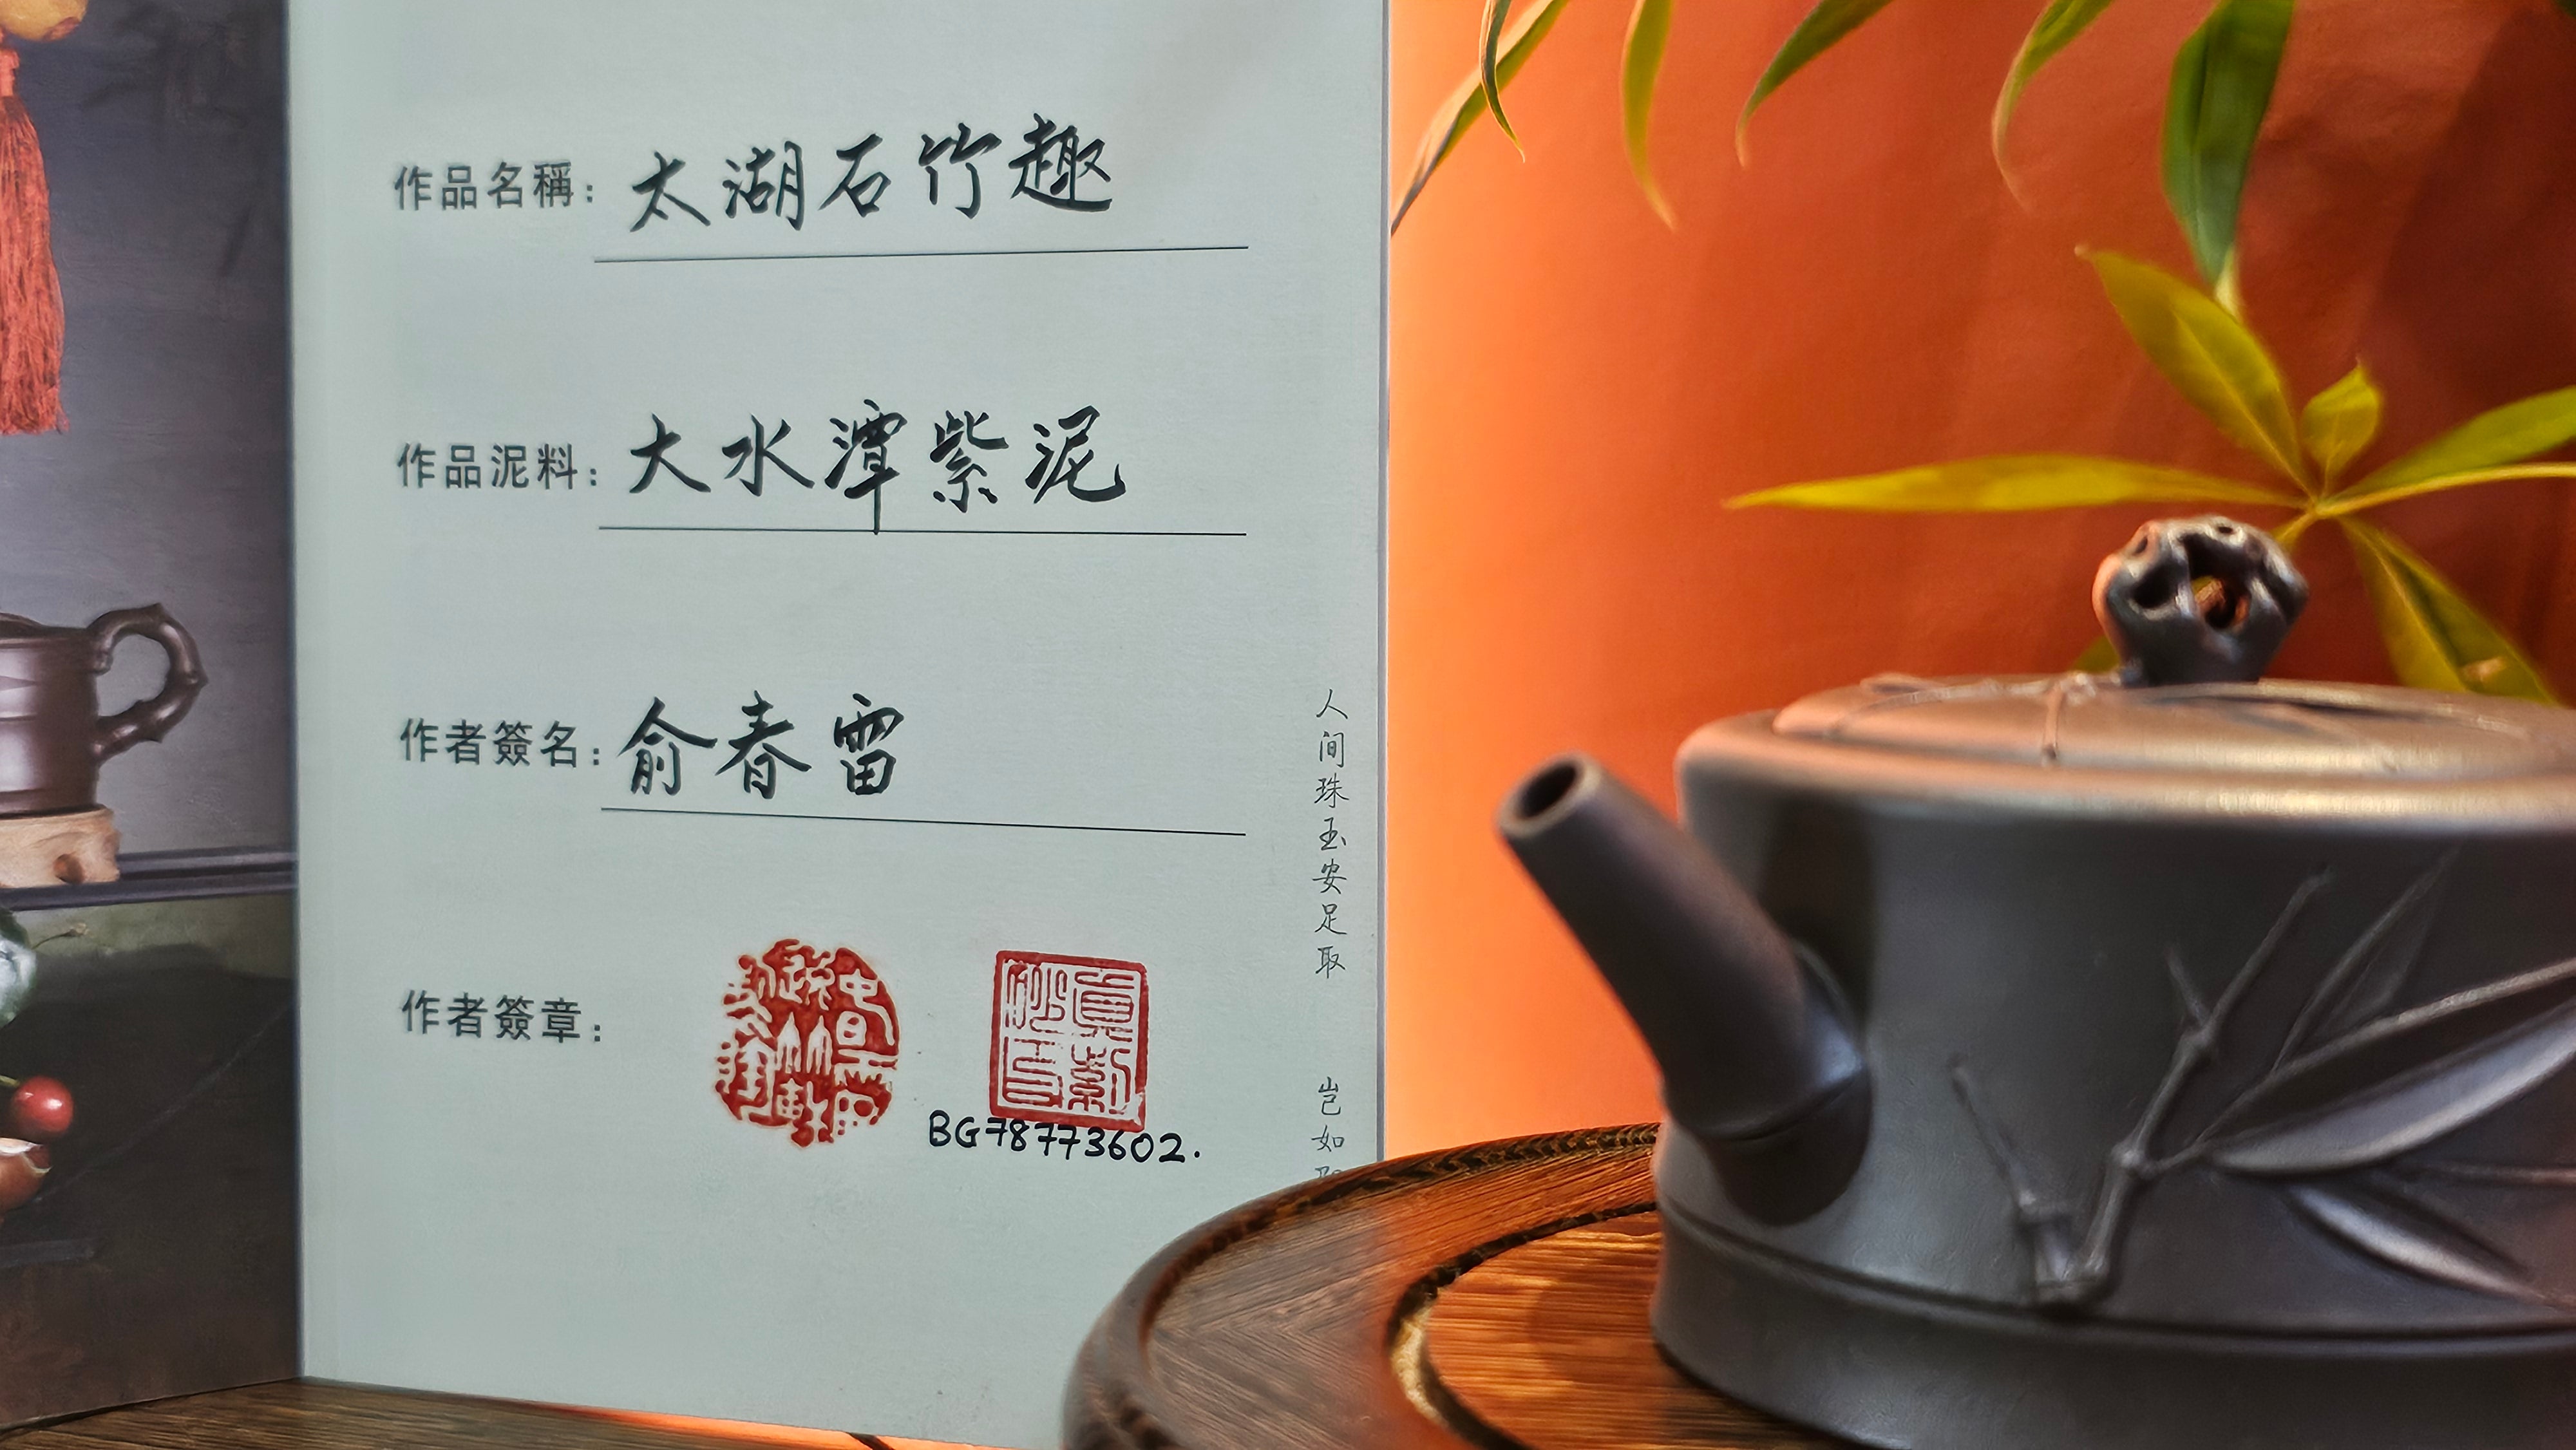 作品名稱：太湖石竹趣
作品泥料：大水潭紫泥
作者簽名：俞春雷
作者簽章：
BG78773602.
人间珠玉安足取
岂如